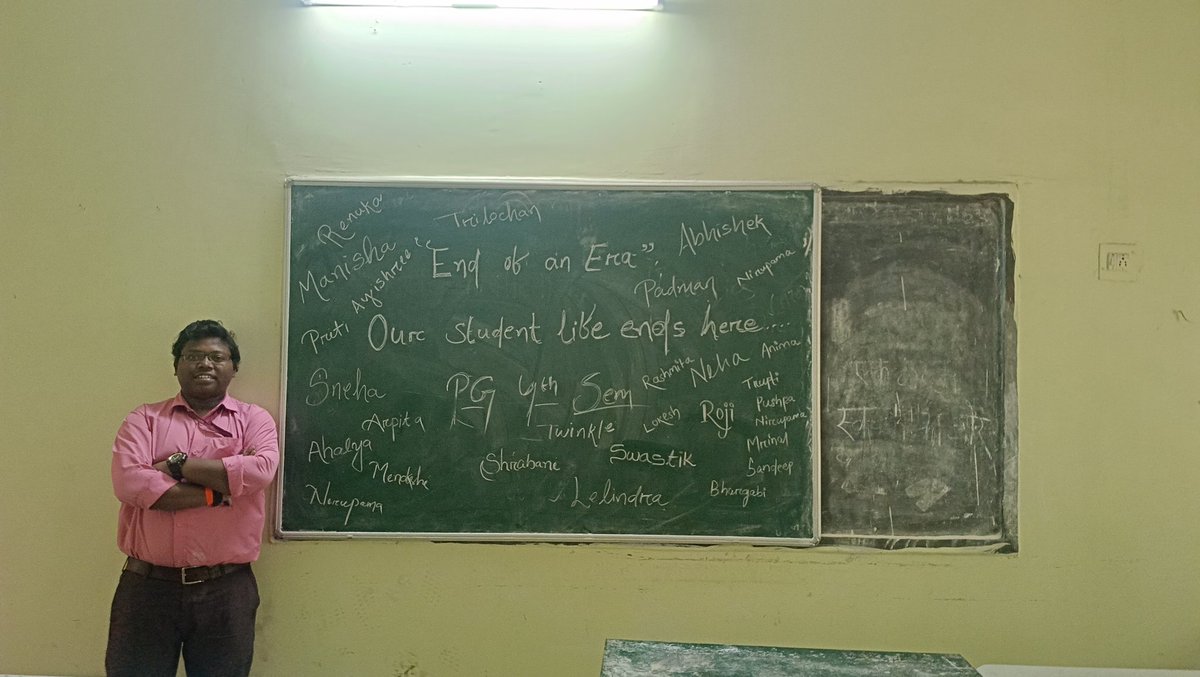 Renuka
Trilochan
Abhishek
Manisha
"End of an Era".
Nirupama
Padman
Pruti
Ourc student life ends here....
Anima
Rashmita
Neha
Sneha
PG 4th Sem
Trupti
Pushpa
Lokesh
Roji
Arpita
Twinkle
Nircupama
Mrinal
Ahalya
Swastik
Sandeep
Lelindra
Bhargabi
Nircupama